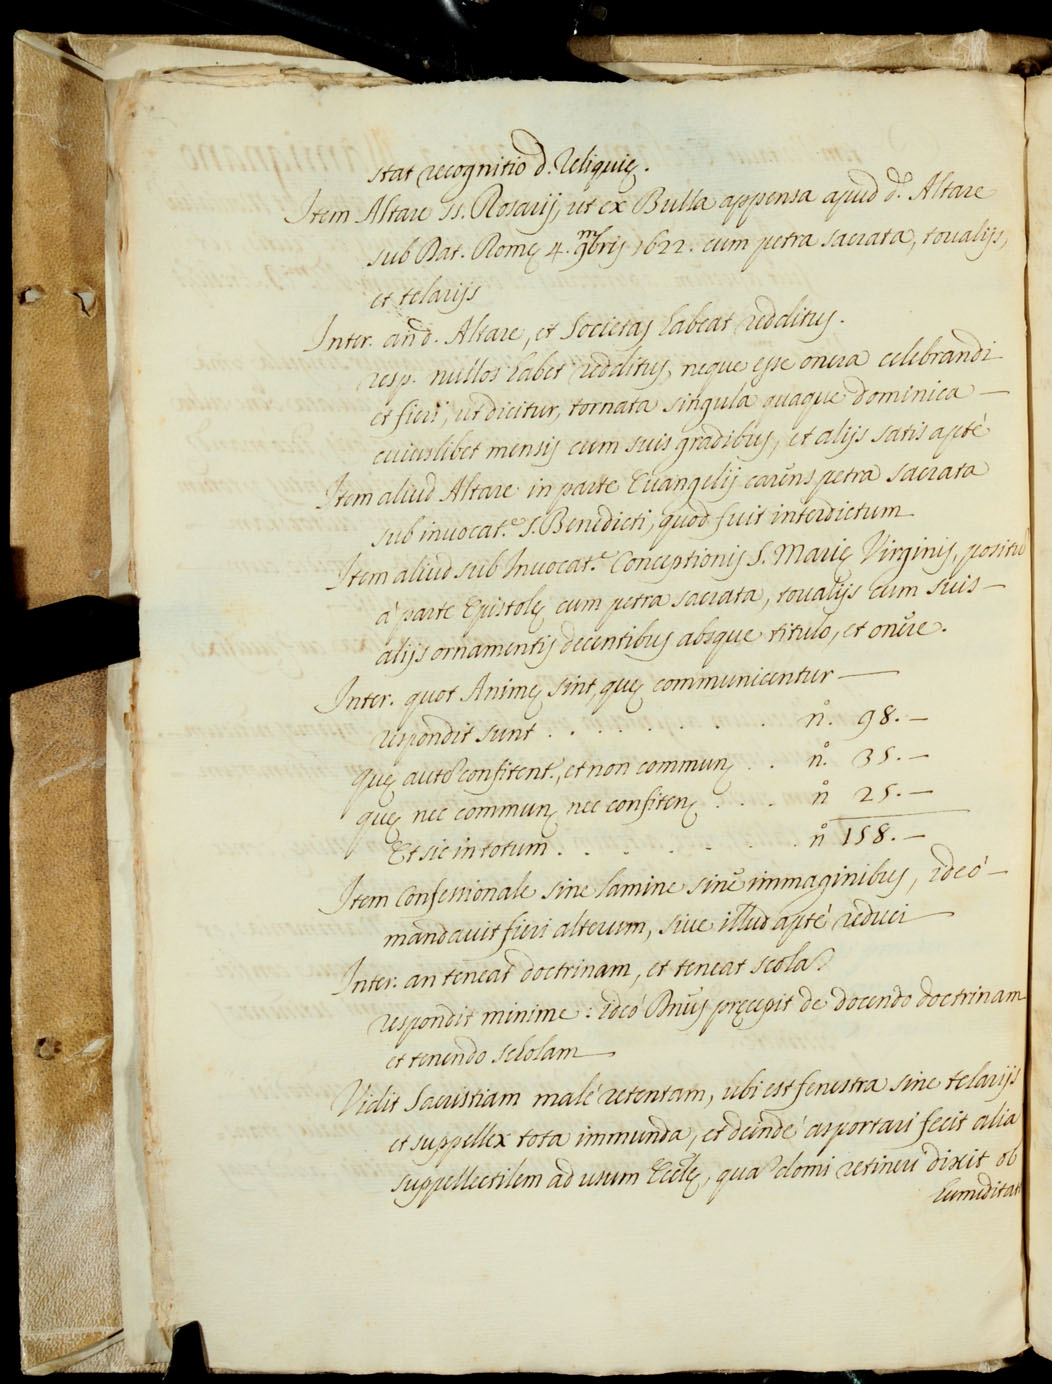 stat recognitio d. Reliquię.
Item Altare SS. Rosarij, ut ex Bulla appensa apud d. Altare
sub Dat. Romę 4. 9mbris 1622. cum petra sacrata, toualijs,
et telarijs
Inter. an d. Altare, et Societas habeat redditus.
resp. nullos habet redditus, neque esse onera celebrandi
et fieri, ut dicitur, tornata singula quaque dominica —
cuiuslibet mensis cum suis gradibus, et alijs satis aptè
Item aliud Altare in parte Euangelij carens petra sacrata
sub inuocat.e S. Benedicti, quod fuit interdictum
Item aliud sub Inuocat.e Conceptionis S. Marię Virginis, positū
à parte Epistolę cum petra sacrata, toualijs cum suis —
alijs ornamentis decentibus absque titulo, et onere.
Inter. quot Animę sint, quę communicentur —
respondit sunt . . . . . . . . nº. 98. —
quę autē confitent., et non commun. . . nº. 35. —
quę nec commun. nec confiten. . . . . nº 25. —
Et sic in totum . . . . . . . . nº 158. —
Item Confessionale sine lamine sine immaginibus, ideò —
mandauit fieri alterum, siue illud aptè reduci —
Inter. an teneat doctrinam, et teneat scolā
respondit minime: ideò Dnūs pręcepit de docendo doctrinam
et tenendo scholam —
Vidit Sacristiam malè retentam, ubi est fenestra sine telarijs
et suppellex tota immunda, et deinde asportari fecit alia
suppellectilem ad usum Ecclę, quā domi retineri dixit ob
humiditat